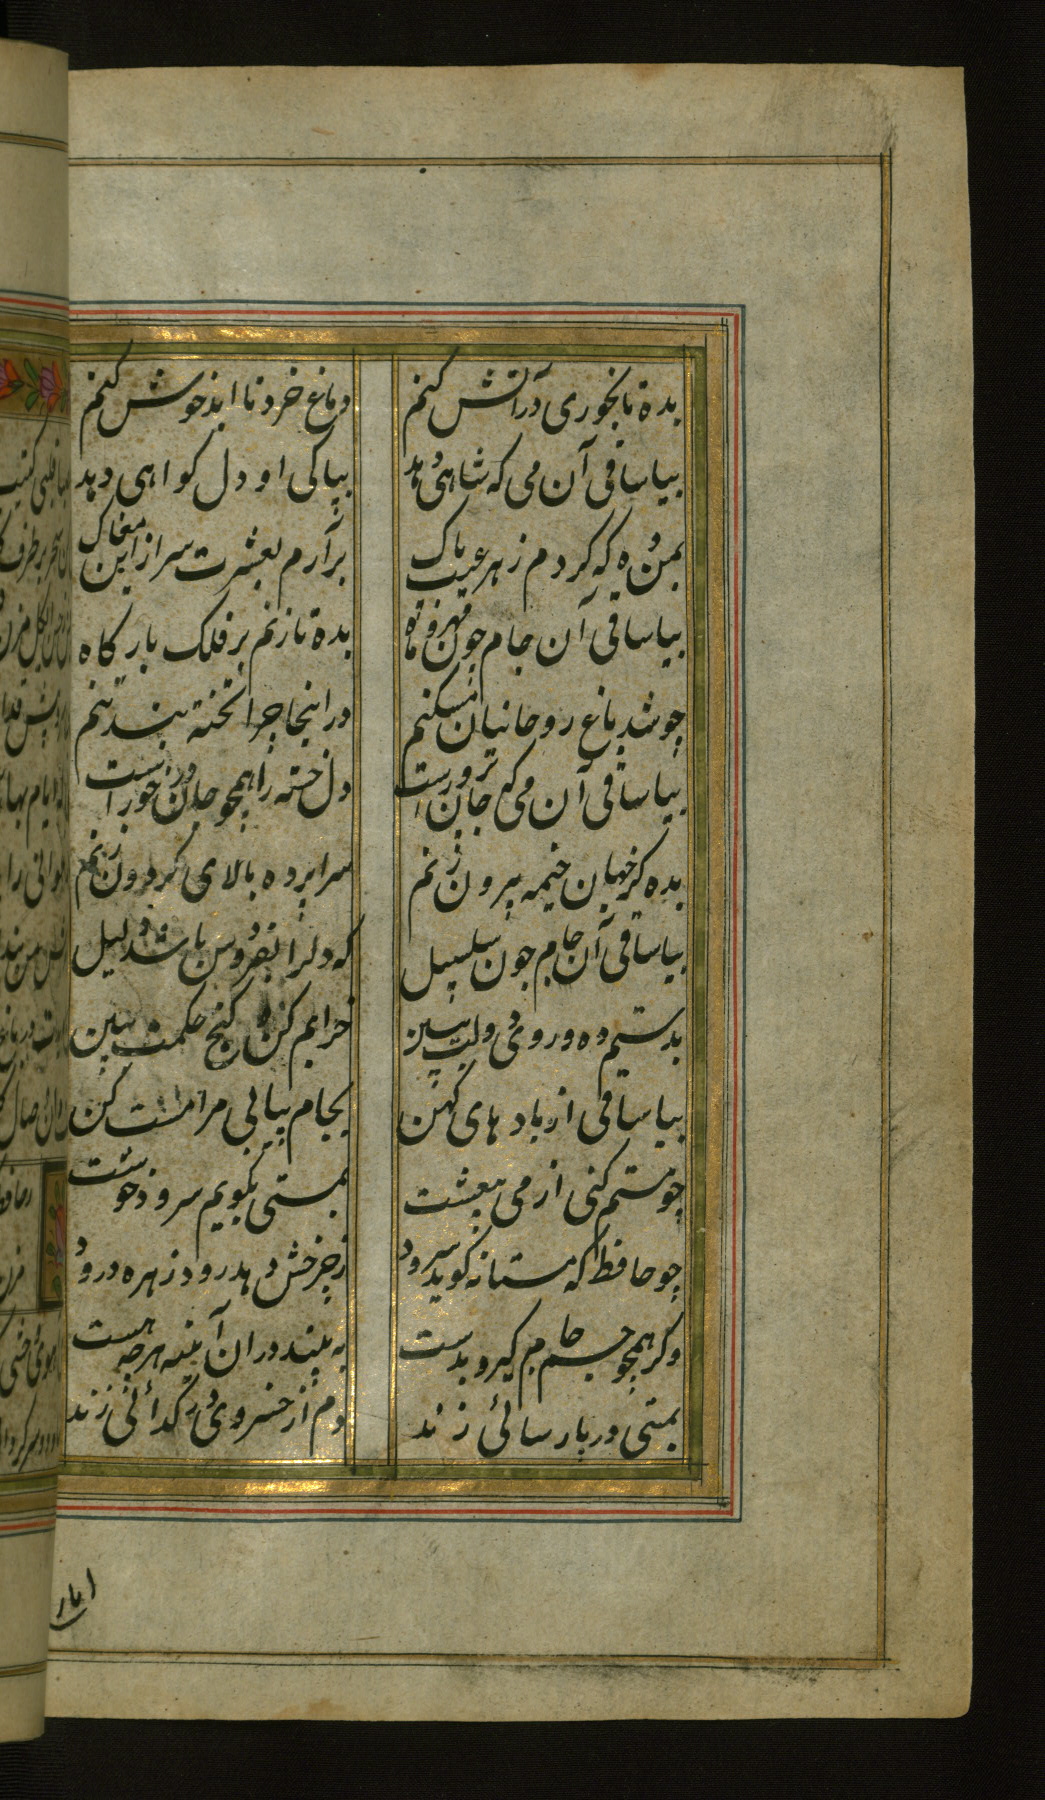 بده تا بخوری در آتش کنم دماغ خرد تا ابد خوش کنم
بیا ساقی آن می که شاهی دهد بپاکی او دل کواهی دهد
بمن ده که کردم ز هر عیب پاک برآرم بعشرت سر از این مغاک
بیا ساقی آن جام چون مهر و ماه بده تا زنم بر فلک بارکاه
چو شد باغ روحانیان مسکنم در اینجا چرا تخته بند تنم
بیا ساقی آن می که جان پرورست دل خسته را همچو جان در خورست
بده کز جهان خیمه بیرون زنم سراپرده بالای کردون زنم
بیا ساقی آن جام چون سلسبیل که دل را بفردوس باشد دلیل
بدستیم ده و روی دولت ببین خرابم کن و کنج حکمت ببین
بیا ساقی از بادهای کهن بجام پیاپی مرا مست کن
چو مستم کنی از می بیغشت بمستی بکویم سرود خوشت
چو حافظ که مستانه کوید سرود ز چرخش دهد رود زهره درود
وکر همچو جم جام کیرد بدست به بیند در آن آینه هرچه هست
بمستی در پارسائی زند دم از خسروی در کدائی زند